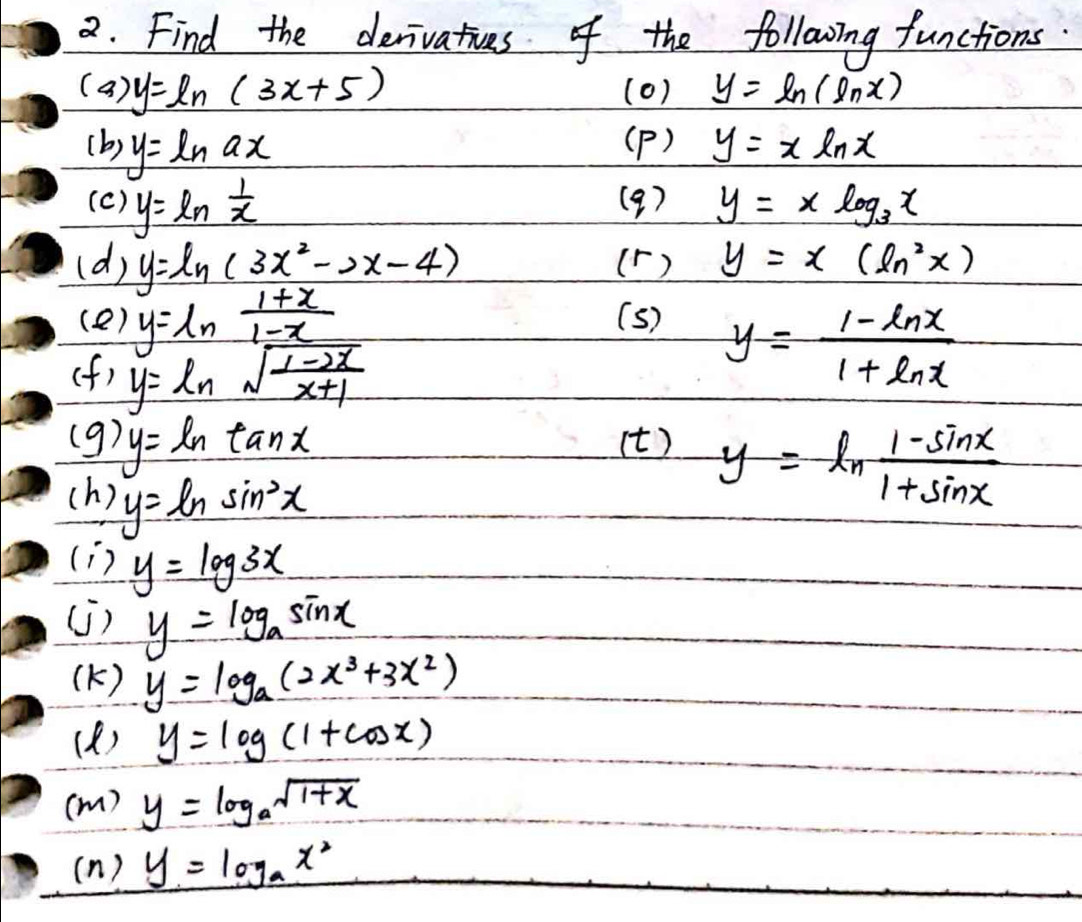 2. Find the derivatives of the following functions.
(a) y = ln (3x+5)
(b) y = ln ax
(c) y = ln 1/x
(d) y = ln (3x² - 2x - 4)
(e) y = ln (1+x)/(1-x)
(f) y = ln √((1-2x)/(x+1))
(g) y = ln tanx
(h) y = ln sin²x
(i) y = log 3x
(j) y = logₐ sinx
(k) y = logₐ (2x³+3x²)
(l) y = log (1+cosx)
(m) y = logₐ √(1+x)
(n) y = logₐ x²
(o) y = ln (lnx)
(p) y = x lnx
(q) y = x log₃ x
(r) y = x (ln²x)
(s) y = (1-lnx)/(1+lnx)
(t) y = ln (1-sinx)/(1+sinx)